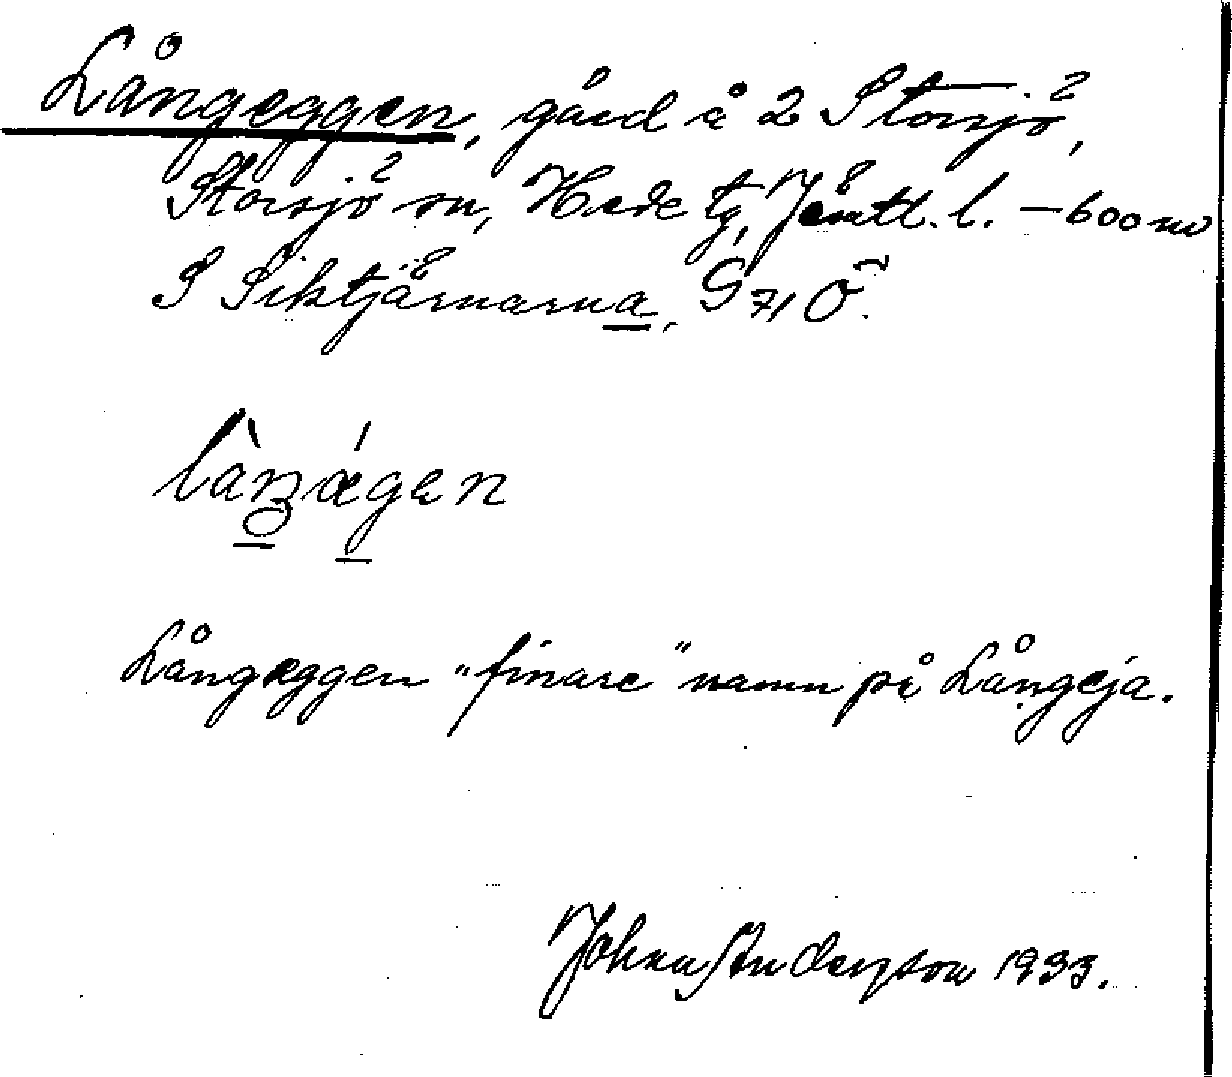 Långeggen, gård å 2 Storsjö,
Storsjö sn, Hede tg, Jämtl. l. – 600 m
S Siktjärnarna, G 71 Ö.
Långeggen "finare" namn på Långeja.
John Anderson 1933.